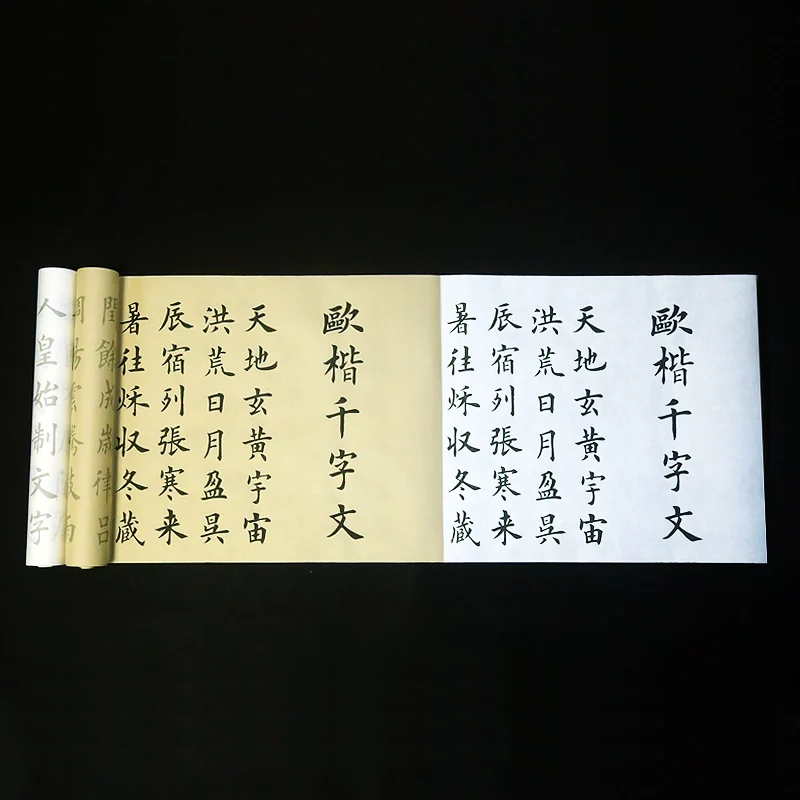 歐楷千字文
天地玄黄宇宙
洪荒日月盈昃
辰宿列張寒来
暑往秋収冬蔵
歐楷千字文
天地玄黄宇宙
洪荒日月盈昃
辰宿列張寒来
暑往秋収冬蔵
閏餘成歲律吕
人皇始制文字